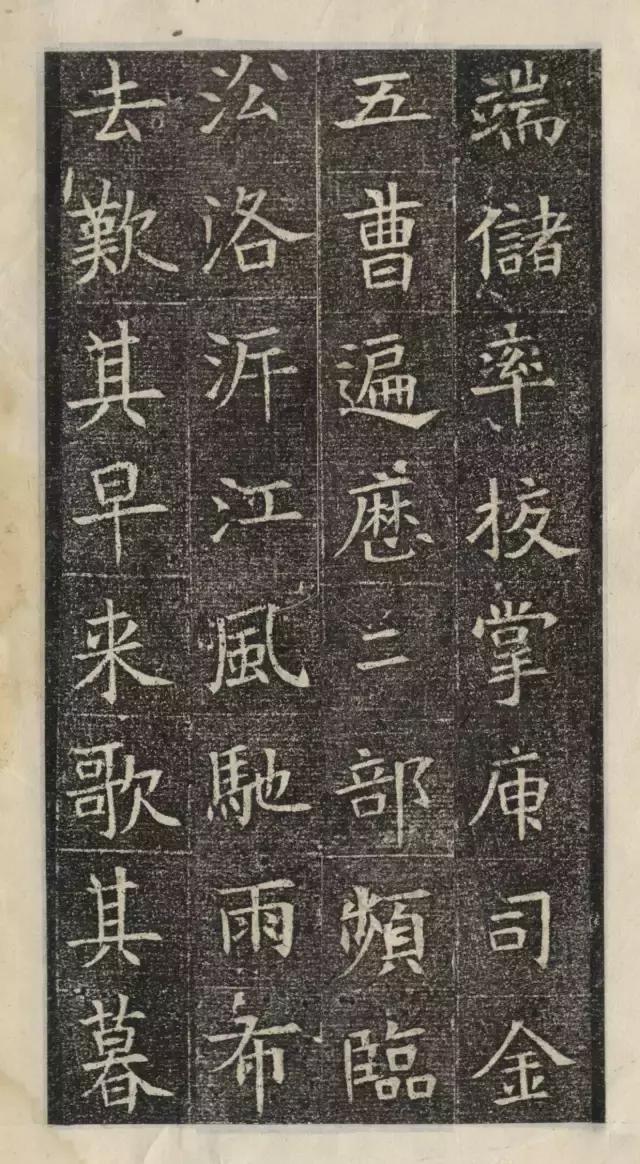 端儲率挍掌庾司金
五曹遍歷二部頻臨
㳂洛泝江風馳雨布
去歎其早来歌其暮